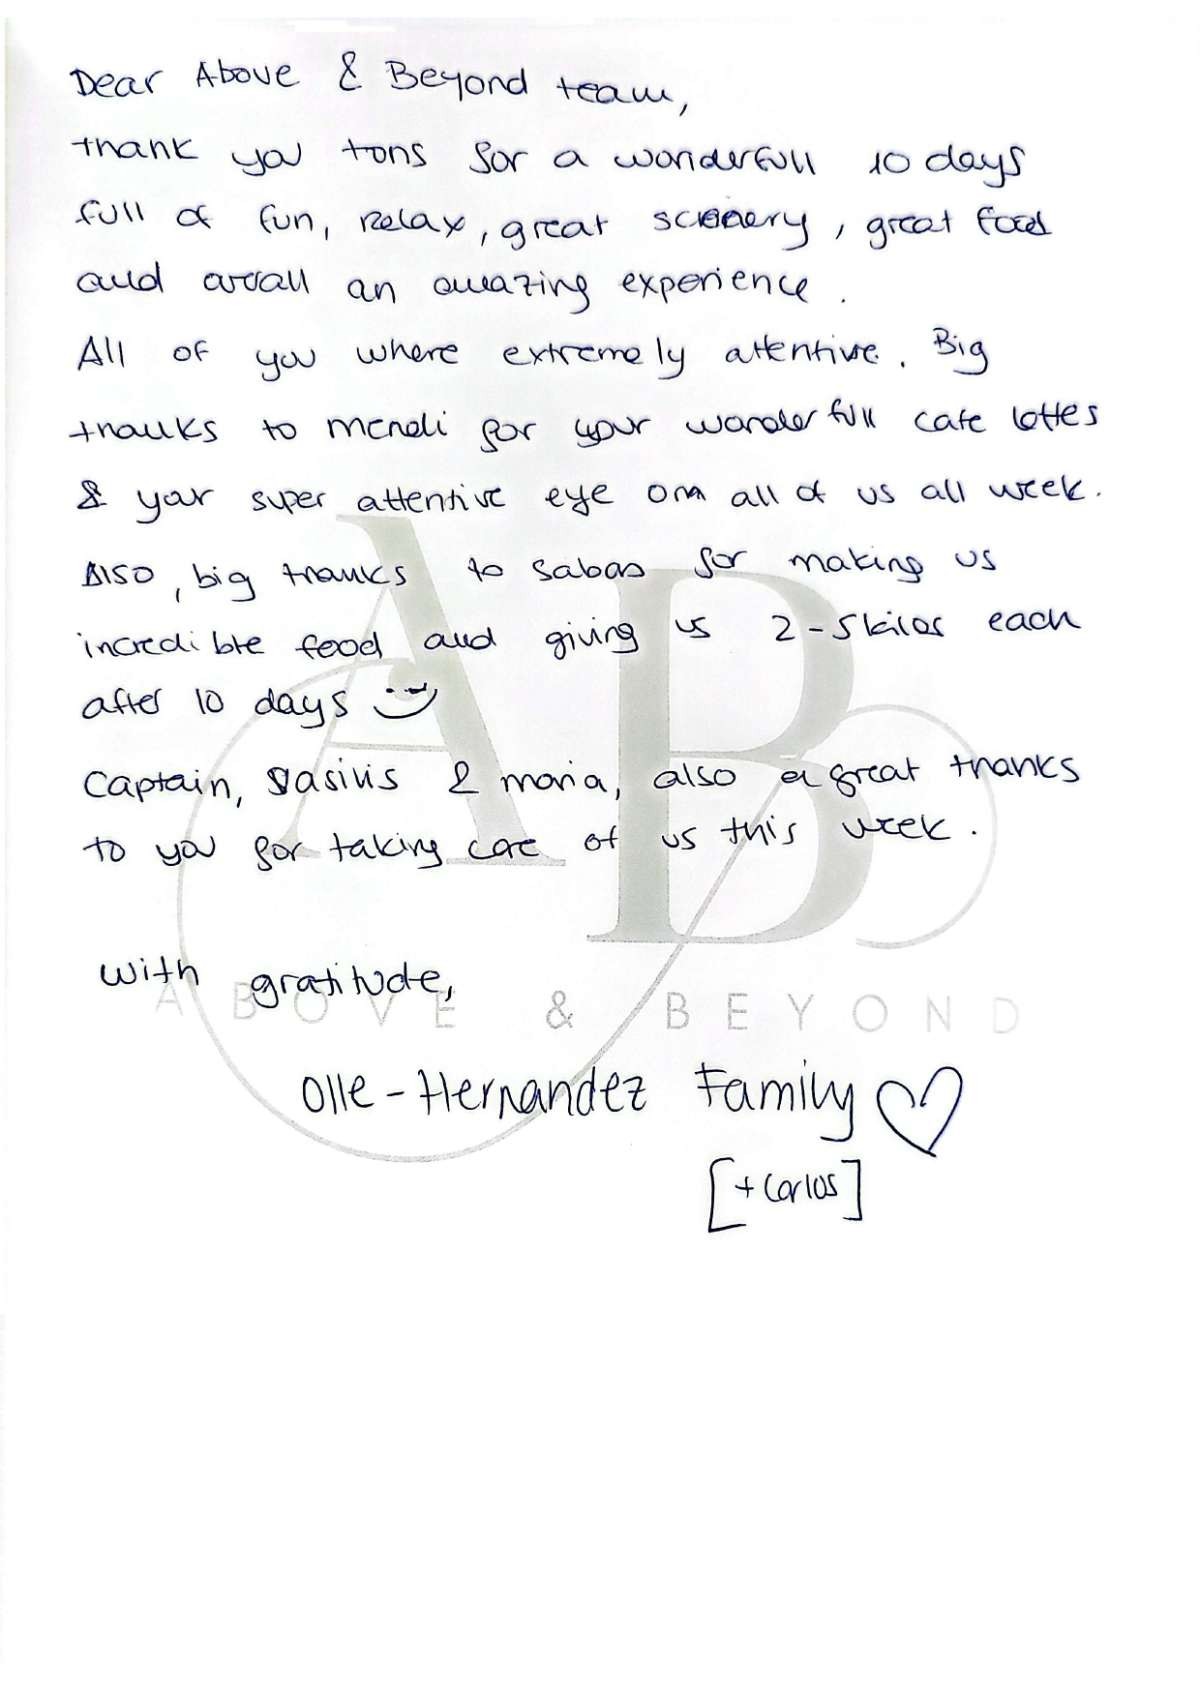 Dear Above & Beyond team,
thank you tons for a wonderfull 10 days
full of fun, relax, great scenery, great food
and overall an amazing experience.
All of you where extremely attentive. Big
thanks to Mendi for your wonderfull cafe lattes
& your super attentive eye on all of us all week.
Also, big thanks to Sabas for making us
incredible food and giving us 2-5 kilos each
after 10 days
Captain, Vasilis & Maria, also a great thanks
to you for taking care of us this week.
With gratitude,
ABOVE & BEYOND
Olle-Hernandez Family
[+ Carlos]
AB